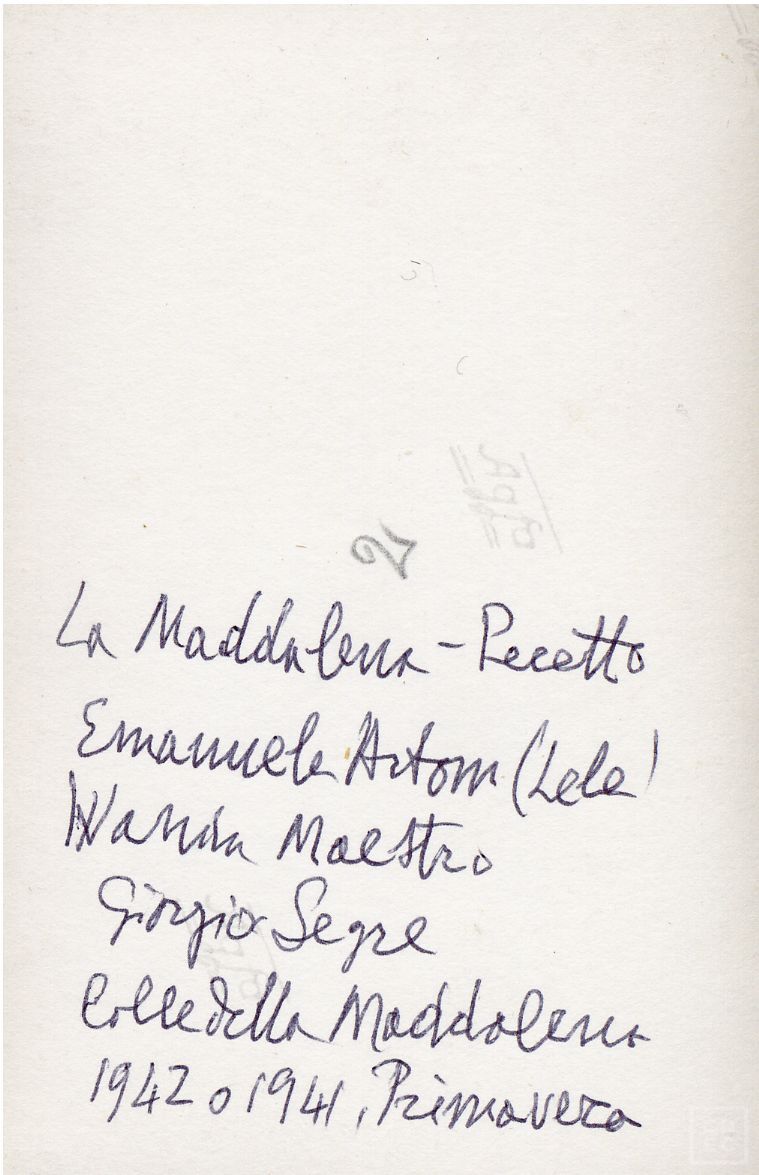 2
La Maddalena - Pecetto
Emanuele Artom (Lele)
Wanda Maestro
Giorgio Segre
Colle della Maddalena
1942 o 1941, Primavera